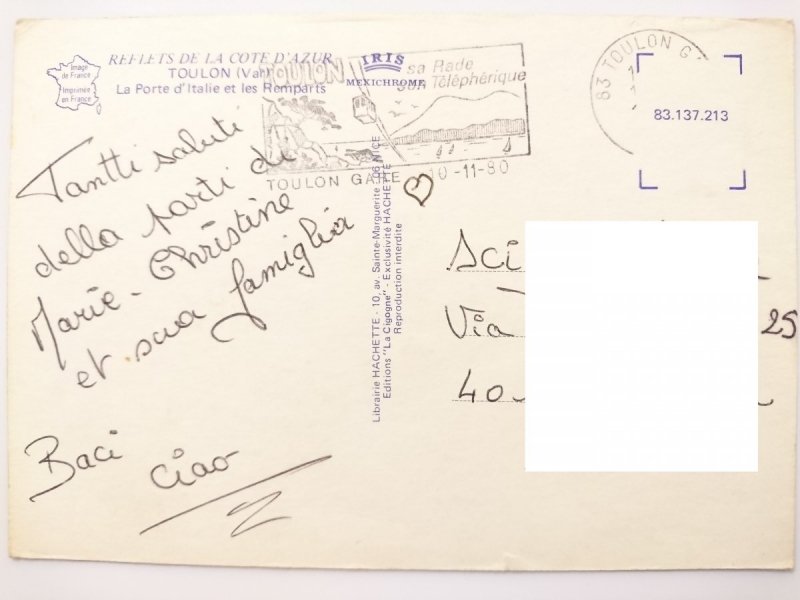 Image
de France
Imprimée
en France
REFLETS DE LA COTE D'AZUR
TOULON (Var)
La Porte d'Italie et les Remparts
IRIS
MEXICHROME
TOULON
sa Rade
son Téléphérique
TOULON GARE 10-11-80
83 TOULON G
83.137.213
Tantti saluti
della parti di
Marie-Christine
et sua famiglia
Baci ciao
Librairie HACHETTE - 10, av. Sainte-Marguerite - 06 NICE
Editions "La Cigogne" - Exclusivité HACHETTE
Reproduction interdite
Sci
Via 25
40